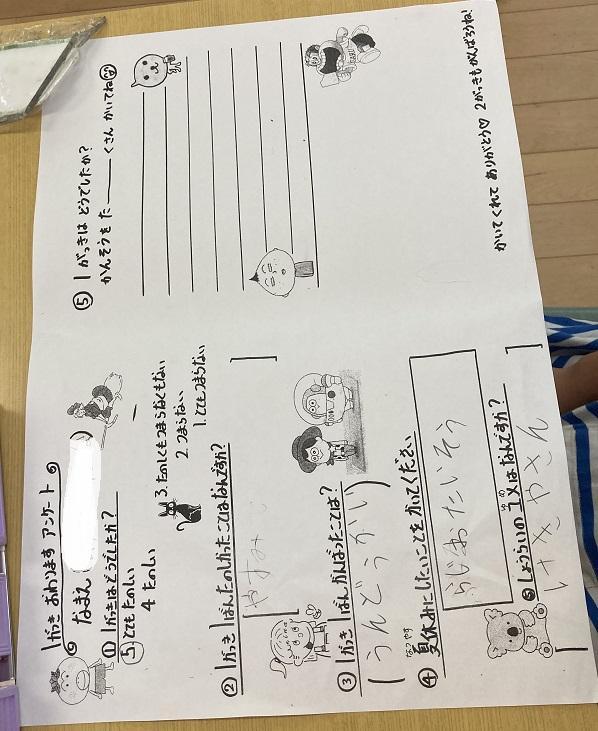 1がっき おわります アンケート
なまえ
① 1がっきはどうでしたか?
5. とても たのしい
4 たのしい
3. たのしくもつまらなくもない
2. つまらない
1. とてもつまらない
② 1がっき 1ばんたのしかったことはなんですか?
やすみ
③ 1がっき 1ばんがんばったことは?
うんどうかい
なつやす
④ 夏休みにしたいことをかいてください
らじおたいそう
⑤ しょうらいのユメはなんですか?
やさん
⑤ 1がっきは どうでしたか?
かんそうを た――くさん かいてね
かいてくれて ありがとう♡ 2がっきもがんばろうね!